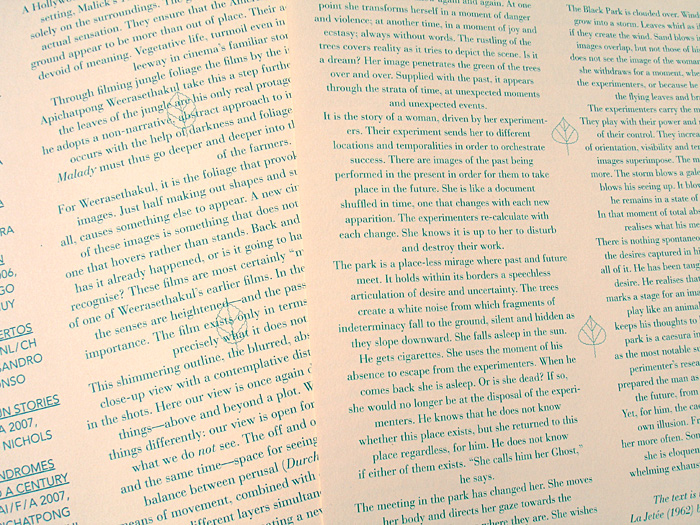 RA
006,
GO
UY
ERTOS
NL/CH
SANDRO
ONSO
UN STORIES
A 2007,
NICHOLS
NDROMES
D A CENTURY
AI/F/A 2007,
CHATPONG
A Hollywo
setting, Malick's
solely on the surroundings. The
actual sensation. They ensure that the Am
ground appear to be more than out of place. Their a
devoid of meaning. Vegetative life, turmoil even in
leeway in cinema's familiar stor
Through filming jungle foliage the films by the i
Apichatpong Weerasethakul take this a step furthe
the leaves of the jungle are his only real protag
he adopts a non-narrative, abstract approach to in
occurs with the help of darkness and foliage
Malady must thus go deeper and deeper into tl
of the farmers.
For Weerasethakul, it is the foliage that provok
images. Just half making out shapes and su
all, causes something else to appear. A new cir
of these images is something that does not
one that hovers rather than stands. Back and
has it already happened, or is it going to ha
recognise? These films are most certainly "m
of one of Weerasethakul's earlier films. In the
the senses are heightened—and the pass
importance. The film exists only in terms
precisely what it does not
This shimmering outline, the blurred, abs
close-up view with a contemplative dist
in the shots. Here our view is once again d
things—above and beyond a plot. W
things differently: our view is open for
what we do not see. The off and o
and the same time—space for seeing
balance between perusal (Durch
means of movement, combined with
different layers simultan
ating a new
point she transforms herself in a moment of danger
and violence; at another time, in a moment of joy and
ecstasy; always without words. The rustling of the
trees covers reality as it tries to depict the scene. Is it
a dream? Her image penetrates the green of the trees
over and over. Supplied with the past, it appears
through the strata of time, at unexpected moments
and unexpected events.
It is the story of a woman, driven by her experiment-
ers. Their experiment sends her to different
locations and temporalities in order to orchestrate
success. There are images of the past being
performed in the present in order for them to take
place in the future. She is like a document
shuffled in time, one that changes with each new
apparition. The experimenters re-calculate with
each change. She knows it is up to her to disturb
and destroy their work.
The park is a place-less mirage where past and future
meet. It holds within its borders a speechless
articulation of desire and uncertainty. The trees
create a white noise from which fragments of
indeterminacy fall to the ground, silent and hidden as
they slope downward. She falls asleep in the sun.
He gets cigarettes. She uses the moment of his
absence to escape from the experimenters. When he
comes back she is asleep. Or is she dead? If so,
she would no longer be at the disposal of the experi-
menters. He knows that he does not know
whether this place exists, but she returned to this
place regardless, for him. He does not know
if either of them exists. "She calls him her Ghost,"
he says.
The meeting in the park has changed her. She moves
her body and directs her gaze towards the
where they are. She wishes
The Black Park is clouded over. Wind
grow into a storm. Leaves whirl as i
if they create the wind. Sand blows in
images overlap, but not those of his
does not see the image of the woman
she withdraws for a moment, w
the experimenters, or because he
the flying leaves and br
The experimenters carry the m
They play with their power and s
of their control. They increa
of orientation, visibility and ter
images superimpose. The m
more. The storm blows a gale
blows his seeing up. It bl
he remains in a state of
In that moment of total at
realises what his me
There is nothing spontaneo
the desires captured in hi
all of it. He has been taug
desire. He realises that
marks a stage for an im
play like an animal
keeps his thoughts to
park is a caesura in
as the most notable s
perimenter's resea
prepared the man as
the future, from
Yet, for him, the cae
own illusion. Fr
her more often. Som
she is eloquen
whelming exhaus
The text is
La Jetée (1962)